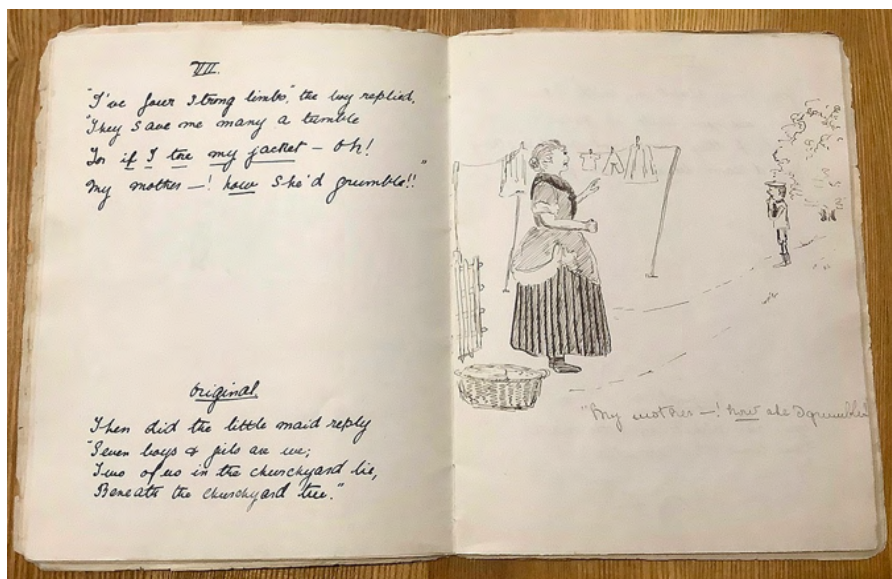 VII.
"I've four strong limbs", the boy replied,
"They save me many a tumble
For if I tore my jacket – Oh!
My mother –! how she'd grumble!!"
Original.
Then did the little maid reply
"Seven boys & girls are we;
Two of us in the churchyard lie,
Beneath the churchyard tree."
"My mother –! how she'd grumble